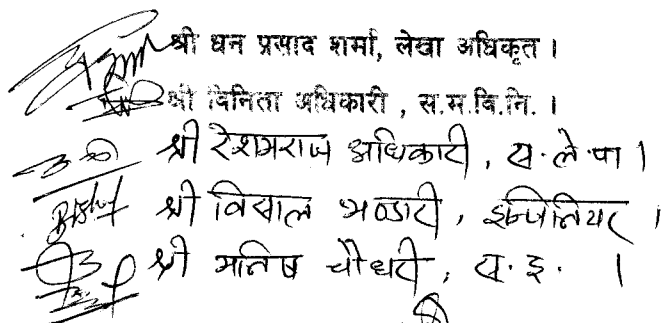 श्री धन प्रसाद शर्मा, लेखा अधिकृत ।
श्री विनिता अधिकारी , स.म.वि.नि. ।
श्री रेशमराज अधिकारी , स.ले.पा ।
श्री विशाल भण्डारी , इन्जिनियर ।
श्री मनिष चौधरी , स.इ. ।